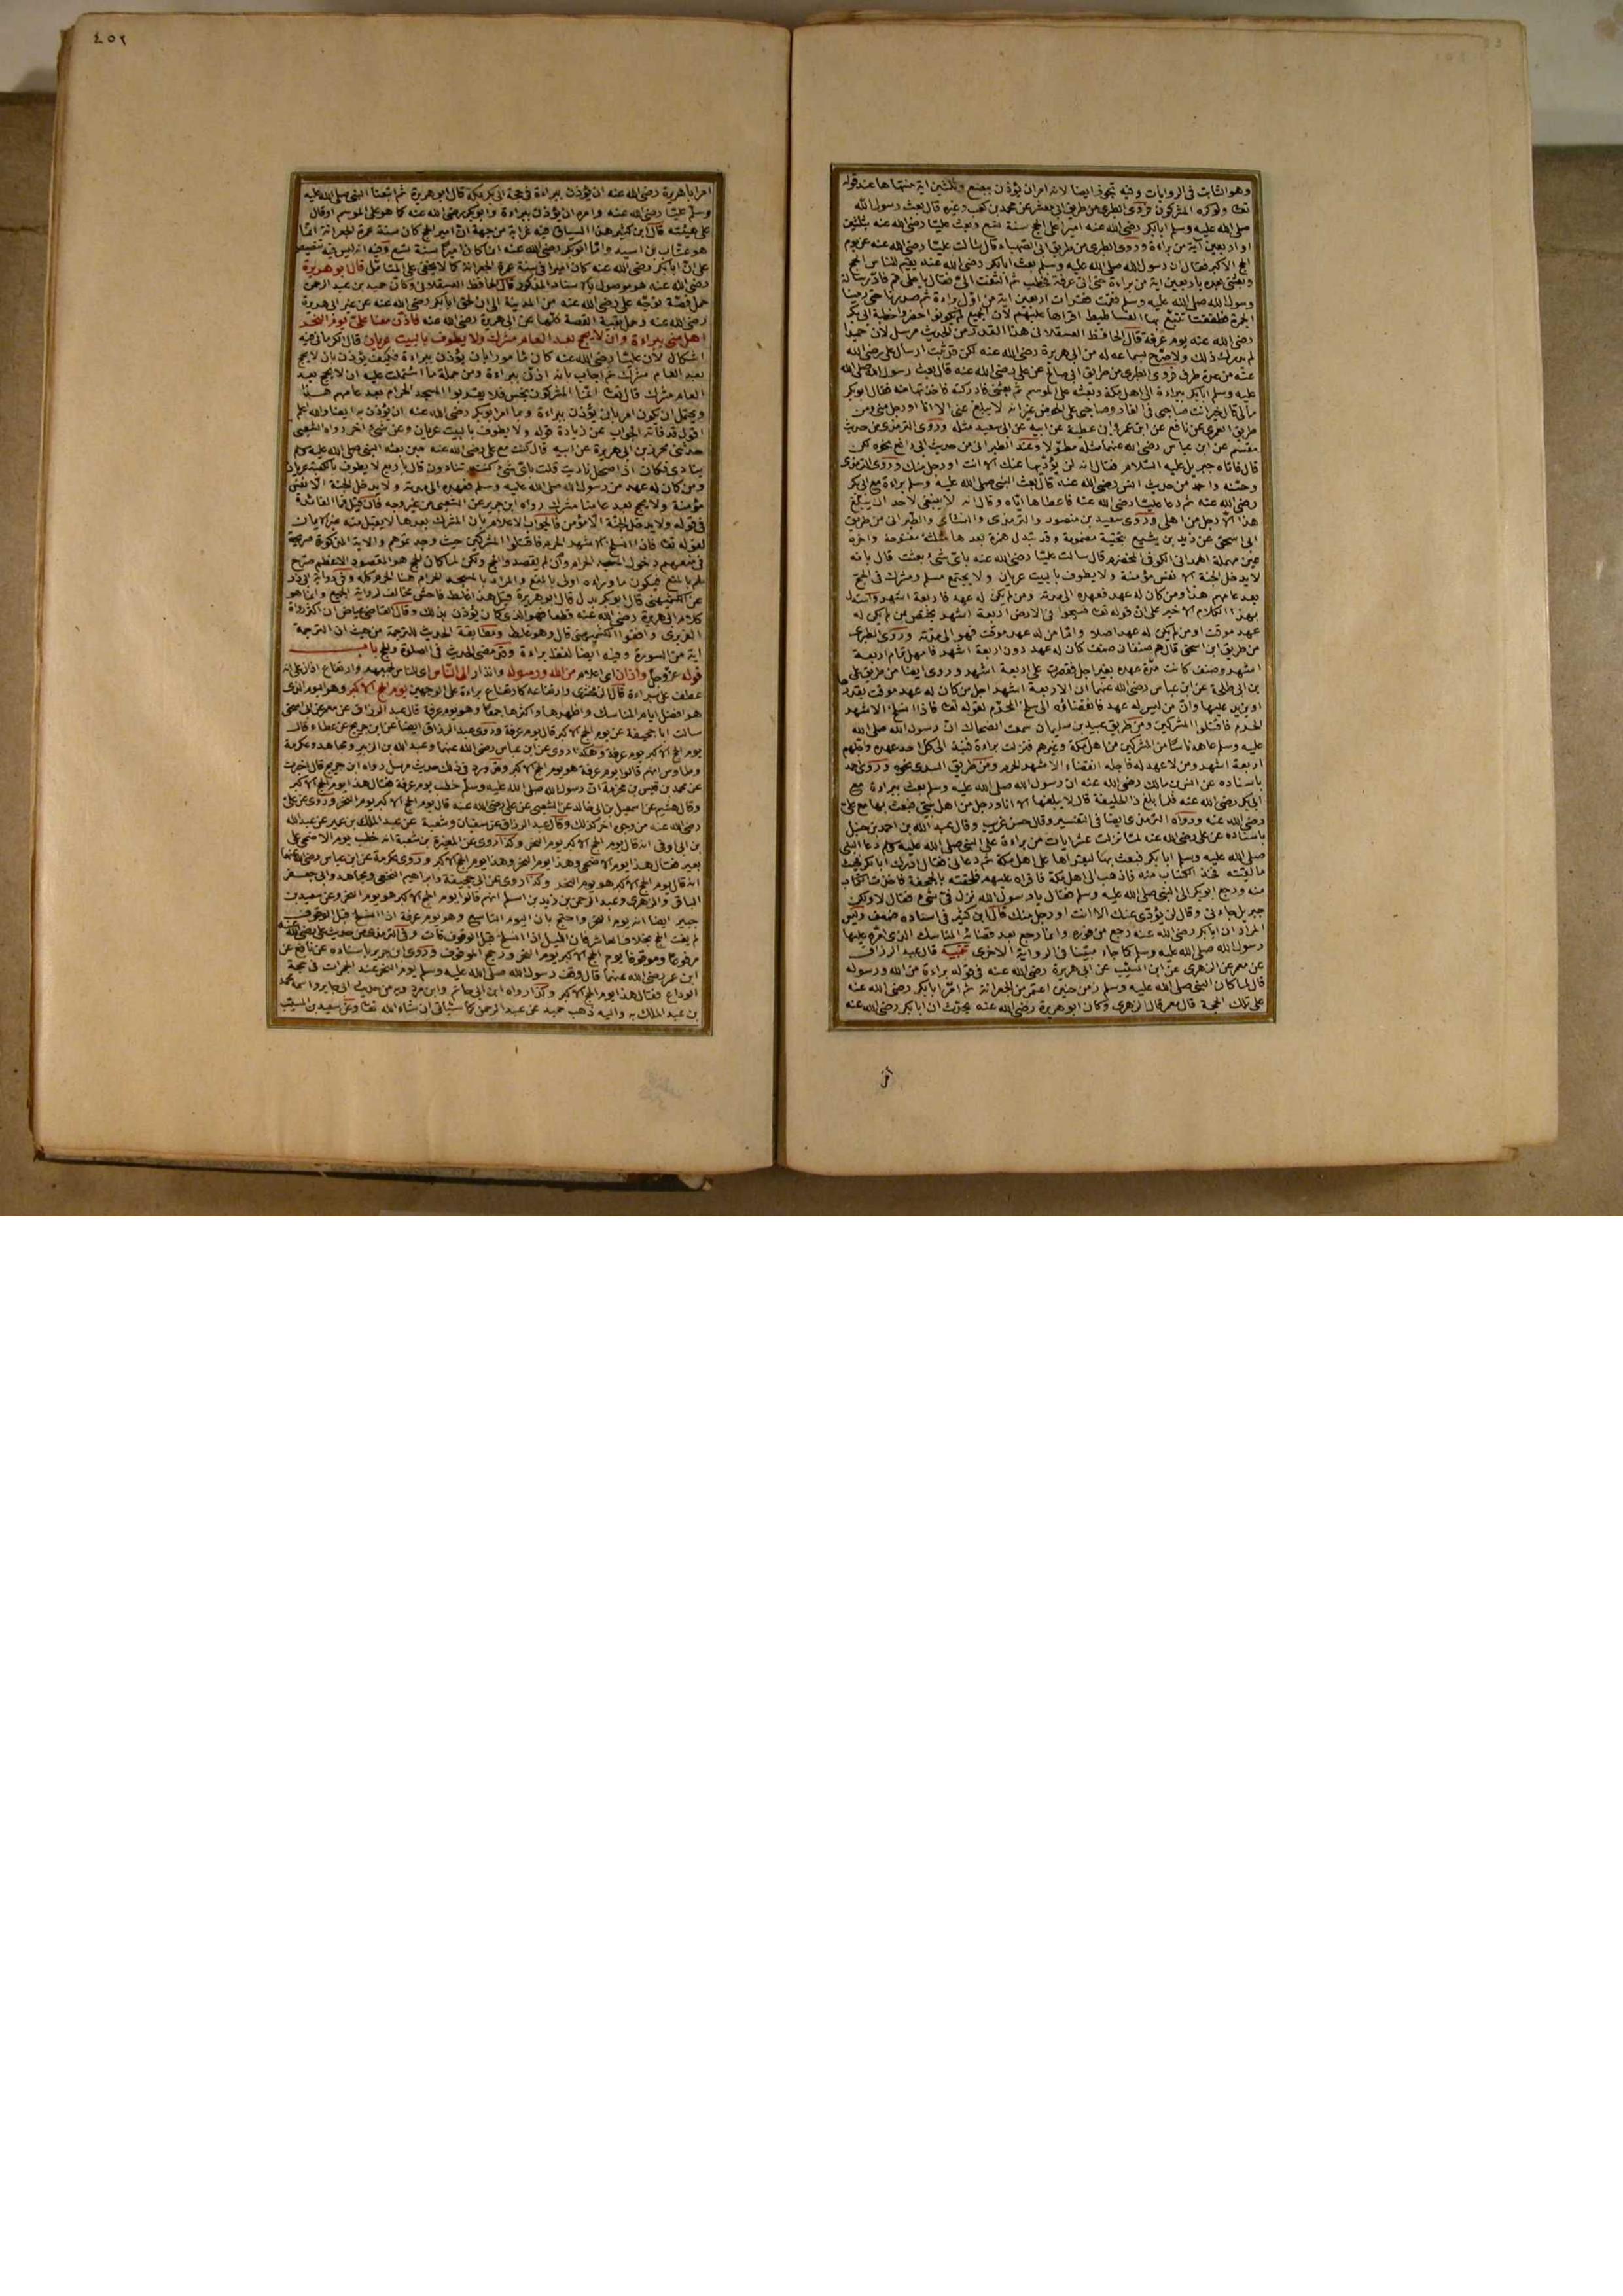 وهو الثابت فى الروايات وفيه تجوز ايضا لانه امر ان يؤذن ببضع وثلثين اية منتهاها عند قوله
تعالى ولو كره المشركون فروى الطبرى من طريق ابى معشر عن محمد بن كعب وغيره قال بعث رسول الله
صلى الله عليه وسلم ابا بكر رضى الله عنه اميرا على الحج سنة تسع وبعث عليا رضى الله عنه بثلثين
او اربعين آية من براءة وروى الطبرى من طريق ابى الصهباء قال سألت عليا رضى الله عنه عن يوم
الحج الاكبر فقال ان رسول الله صلى الله عليه وسلم بعث ابا بكر رضى الله عنه يقيم للناس الحج
وبعثنى بعده باربعين اية من براءة حتى اتى عرفة فخطب ثم التفت الى فقال يا على قم فاد رسالة
رسول الله صلى الله عليه وسلم فقمت فقرأت اربعين اية من اول براءة ثم صدرنا حتى رمينا
الجمرة فطفقت اتتبع بها الفساطيط اقراها عليهم لان الجميع لم يكونوا حضروا خطبة ابى بكر
رضى الله عنه يوم عرفة قال الحافظ العسقلانى هذا القدر من الحديث مرسل لان حميدا
لم يدرك ذلك ولا صرح بسماعه له من ابى هريرة رضى الله عنه لكن قد ثبت ارسال على رضى الله
عنه من عدة طرق فروى الطبرى من طريق ابى صالح عن على رضى الله عنه قال بعث رسول الله صلى الله
عليه وسلم ابا بكر ببراءة الى اهل مكة وبعثه على الموسم ثم بعثنى فادركته فاخذتها منه فقال ابو بكر
مالى قال خير انت صاحبى فى الغار وصاحبى على الحوض غير انه لا يبلغ عنى الا انا او رجل منى ومن
طريق العمرى عن نافع عن ابن عمر وابى عطية عن ابيه عن ابى سعيد مثله وروى الترمذى من حديث
مقسم عن ابن عباس رضى الله عنهما مثله مطولا وعند الطبرانى من حديث ابى رافع نحوه لكن
قال فاتاه جبريل عليه السلام فقال انه لن يؤديها عنك الا انت او رجل منك وروى الترمذى
وحسنه واحمد من حديث انس رضى الله عنه قال بعث النبى صلى الله عليه وسلم براءة مع ابى بكر
رضى الله عنه ثم دعا عليا رضى الله عنه فاعطاها اياه وقال انه لا ينبغى لاحد ان يبلغ
هذا الا رجل من اهلى وروى سعيد بن منصور والترمذى والنسائى والطبرانى من طريق
ابى اسحق عن زيد بن يثيع بتحتية مضمومة وقد تبدل همزة بعدها مثلثة مفتوحة واخره
عين مهملة الهمدانى الكوفى المخضرم قال سالت عليا رضى الله عنه باى شىء بعثت قال بانه
لا يدخل الجنة الا نفس مؤمنة ولا يطوف بالبيت عريان ولا يجتمع مسلم ومشرك فى الحج
بعد عامهم هذا ومن كان له عهد فعهده الى مدته ومن لم يكن له عهد فاربعة اشهر واستدل
بهذا الكلام الاخير على ان قوله تعالى فسيحوا فى الارض اربعة اشهر يختص بمن لم يكن له
عهد موقت او من لم يكن له عهد اصلا واما من له عهد موقت فهو الى مدته وروى الطبرى
من طريق ابن اسحق قال هم صنفان صنف كان له عهد دون اربعة اشهر فامهل تمام اربعة
اشهر وصنف كانت مدة عهده بغير اجل فقصرت على اربعة اشهر وروى ايضا من طريق على
بن ابى طلحة عن ابن عباس رضى الله عنهما ان الاربعة اشهر اجل من كان له عهد موقت بقدرها
او يزيد عليها وان من ليس له عهد فانقضاؤه الى سلخ المحرم لقوله تعالى فاذا انسلخ الاشهر
الحرم فاقتلوا المشركين ومن طريق عبيد بن سليمان سمعت الضحاك ان رسول الله صلى الله
عليه وسلم عاهد ناسا من المشركين من اهل مكة وغيرهم فنزلت براءة فنبذ الى كل احد عهده واجلهم
اربعة اشهر ومن لا عهد له فاجله انقضاء الاشهر الحرم ومن طريق السدى نحوه وروى احمد
باسناده عن انس بن مالك رضى الله عنه ان رسول الله صلى الله عليه وسلم بعث ببراءة مع
ابى بكر رضى الله عنه فلما بلغ ذا الحليفة قال لا يبلغها الا انا او رجل من اهل بيتى فبعث بها مع على
رضى الله عنه ورواه الترمذى ايضا فى التفسير وقال حسن غريب وقال عبد الله بن احمد بن حنبل
باسناده عن على رضى الله عنه لما نزلت عشر ايات من براءة على النبى صلى الله عليه وسلم دعا النبى
صلى الله عليه وسلم ابا بكر فبعث بها ليقراها على اهل مكة ثم دعانى فقال ادرك ابا بكر فحيث
ما لقيته فخذ الكتاب منه فاذهب الى اهل مكة فاقراه عليهم فلحقته بالجحفة فاخذت الكتاب
منه ورجع ابو بكر الى النبى صلى الله عليه وسلم فقال يا رسول الله نزل فى شىء فقال لا ولكن
جبريل جاءنى وقال لن يؤدى عنك الا انت او رجل منك قال ابن كثير فى اسناده ضعف وليس
المراد ان ابا بكر رضى الله عنه رجع من فوره وانما رجع بعد قضائه المناسك التى امره عليها
رسول الله صلى الله عليه وسلم كما جاء مبينا فى الرواية الاخرى تنبيه قال عبد الرزاق
عن معمر عن الزهرى عن ابن المسيب عن ابى هريرة رضى الله عنه فى قوله براءة من الله ورسوله
قال لما كان النبى صلى الله عليه وسلم زمن حنين اعتمر من الجعرانة ثم امر ابا بكر رضى الله عنه
على تلك الحجة قال معمر قال الزهرى وكان ابو هريرة رضى الله عنه يحدث ان ابا بكر رضى الله عنه
امر
٤٥٢
امر ابا هريرة رضى الله عنه ان يؤذن ببراءة فى حجة ابى بكر بمكة قال ابو هريرة ثم اتبعنا النبى صلى الله عليه
وسلم عليا رضى الله عنه وامره ان يؤذن ببراءة وابو بكر رضى الله عنه كما هو على الموسم او قال
على هيئته قال ابن كثير هذا السياق فيه غرابة من جهة ان امير الحج كان سنة عمرة الجعرانة انما
هو عتاب بن اسيد واما ابو بكر رضى الله عنه انما كان اميرا سنة تسع وفيه انه ليس فيه تنصيص
على ان ابا بكر رضى الله عنه كان اميرا فى سنة عمرة الجعرانة كما لا يخفى على المتامل قال ابو هريرة
رضى الله عنه هو موصول بالاسناد المذكور قال الحافظ العسقلانى وكان حميد بن عبد الرحمن
حمل قصة توجه على رضى الله عنه من المدينة الى ان لحق ابا بكر رضى الله عنه عن غير ابى هريرة
رضى الله عنه وحمل بقية القصة كلها عن ابى هريرة رضى الله عنه فاذن معنا على يوم النحر
اهل منى ببراءة وان لا يحج بعد العام مشرك ولا يطوف بالبيت عريان قال الكرمانى فيه
اشكال لان عليا رضى الله عنه كان مامورا بان يؤذن ببراءة فكيف يؤذن بان لا يحج
بعد العام مشرك ثم اجاب بانه اذن ببراءة ومن جملة ما اشتملت عليه ان لا يحج بعد
العام مشرك قال تعالى انما المشركون نجس فلا يقربوا المسجد الحرام بعد عامهم هذا
ويحتمل ان يكون امر بان يؤذن ببراءة وبما امر ابو بكر رضى الله عنه ان يؤذن به ايضا والله اعلم
اقول قد فاته الجواب عن زيادة قوله ولا يطوف بالبيت عريان وعن شىء اخر رواه الشعبى
حدثنى محرز بن ابى هريرة عن ابيه قال كنت مع على رضى الله عنه حين بعثه النبى صلى الله عليه وسلم
ينادى فكان اذا صحل ناديت قلت باى شىء كنتم تنادون قال باربع لا يطوف بالكعبة عريان
ومن كان له عهد من رسول الله صلى الله عليه وسلم فعهده الى مدته ولا يدخل الجنة الا نفس
مؤمنة ولا يحج بعد عامنا مشرك رواه ابن جرير عن الشعبى من غير وجه فان قيل فما الفائدة
فى قوله ولا يدخل الجنة الا مؤمن فالجواب الاعلام بان المشرك بعدها لا يقبل منه غير الايمان
لقوله تعالى فاذا انسلخ الاشهر الحرم فاقتلوا المشركين حيث وجدتموهم والاية المذكورة صريحة
فى منعهم دخول المسجد الحرام وان لم يقصدوا الحج ولكن لما كان الحج هو المقصود الاعظم صرح
لهم بالمنع فيكون ما وراءه اولى بالمنع والمراد بالمسجد الحرام هنا الحرم كله وفى رواية ابى ذر
عن الكشميهنى قال ابو بكر بدل قال ابو هريرة قيل هذا غلط فاحش مخالف لرواية الجميع وانما هو
كلام ابى هريرة رضى الله عنه قطعا فهو الذى كان يؤذن بذلك وقال القاضى عياض ان اكثر رواة
الفربرى وافقوا الكشميهنى قال وهو غلط ومطابقة الحديث للترجمة من حيث ان الترجمة
اية من السورة وفيه ايضا لفظ براءة وقد مضى الحديث فى الصلوة والحج باب
قوله عز وجل واذان اى اعلام من الله ورسوله وانذار الى الناس اى للناس جميعهم وارتفاع اذان على انه
عطف على براءة قال الزمخشرى وارتفاعه كارتفاع براءة على الوجهين يوم الحج الاكبر وهو اليوم الذى
هو افضل ايام المناسك واظهرها واكثرها جمعا وهو يوم عرفة قال عبد الرزاق عن معمر عن ابى اسحق
سالت ابا جحيفة عن يوم الحج الاكبر قال يوم عرفة وروى عبد الرزاق ايضا عن ابن جريج عن عطاء قال
يوم الحج الاكبر يوم عرفة وهكذا روى عن ابن عباس رضى الله عنهما وعبد الله بن الزبير ومجاهد وعكرمة
وطاوس انهم قالوا يوم عرفة هو يوم الحج الاكبر وقد ورد فى ذلك حديث مرسل رواه ابن جريج قال اخبرت
عن محمد بن قيس بن مخرمة ان رسول الله صلى الله عليه وسلم خطب يوم عرفة فقال هذا يوم الحج الاكبر
وقال هشيم عن اسمعيل بن ابى خالد عن الشعبى عن على رضى الله عنه قال يوم الحج الاكبر يوم النحر وروى عن على
رضى الله عنه من وجوه اخر كذلك وقال عبد الرزاق عن سفيان وشعبة عن عبد الملك بن عمير عن عبد الله
بن ابى اوفى انه قال يوم الحج الاكبر يوم النحر وكذا روى عن المغيرة بن شعبة انه خطب يوم الاضحى على
بعير فقال هذا يوم الاضحى وهذا يوم النحر وهذا يوم الحج الاكبر وروى عكرمة عن ابن عباس رضى الله عنهما
انه قال يوم الحج الاكبر هو يوم النحر وكذا روى عن ابى جحيفة وابراهيم النخعى ومجاهد وابى جعفر
الباقر والزهرى وعبد الرحمن بن زيد بن اسلم انهم قالوا يوم الحج الاكبر هو يوم النحر وعن سعيد بن
جبير ايضا انه يوم النحر واحتج بان اليوم التاسع وهو يوم عرفة اذا انسلخ قبل الوقوف
لم يفت الحج بخلاف العاشر فان الليل اذا انسلخ قبل الوقوف فات وفى الترمذى من حديث على رضى الله عنه
مرفوعا وموقوفا يوم الحج الاكبر يوم النحر ورجح الموقوف وروى ابن جرير باسناده عن نافع عن
ابن عمر رضى الله عنهما قال وقف رسول الله صلى الله عليه وسلم يوم النحر عند الجمرات فى حجة
الوداع فقال هذا يوم الحج الاكبر وكذا رواه ابن ابى حاتم وابن مردويه من حديث ابى جابر واسمه محمد
بن عبد الملك به واليه ذهب حميد عن عبد الرحمن كما سياتى ان شاء الله تعالى وعن سعيد بن المسيب